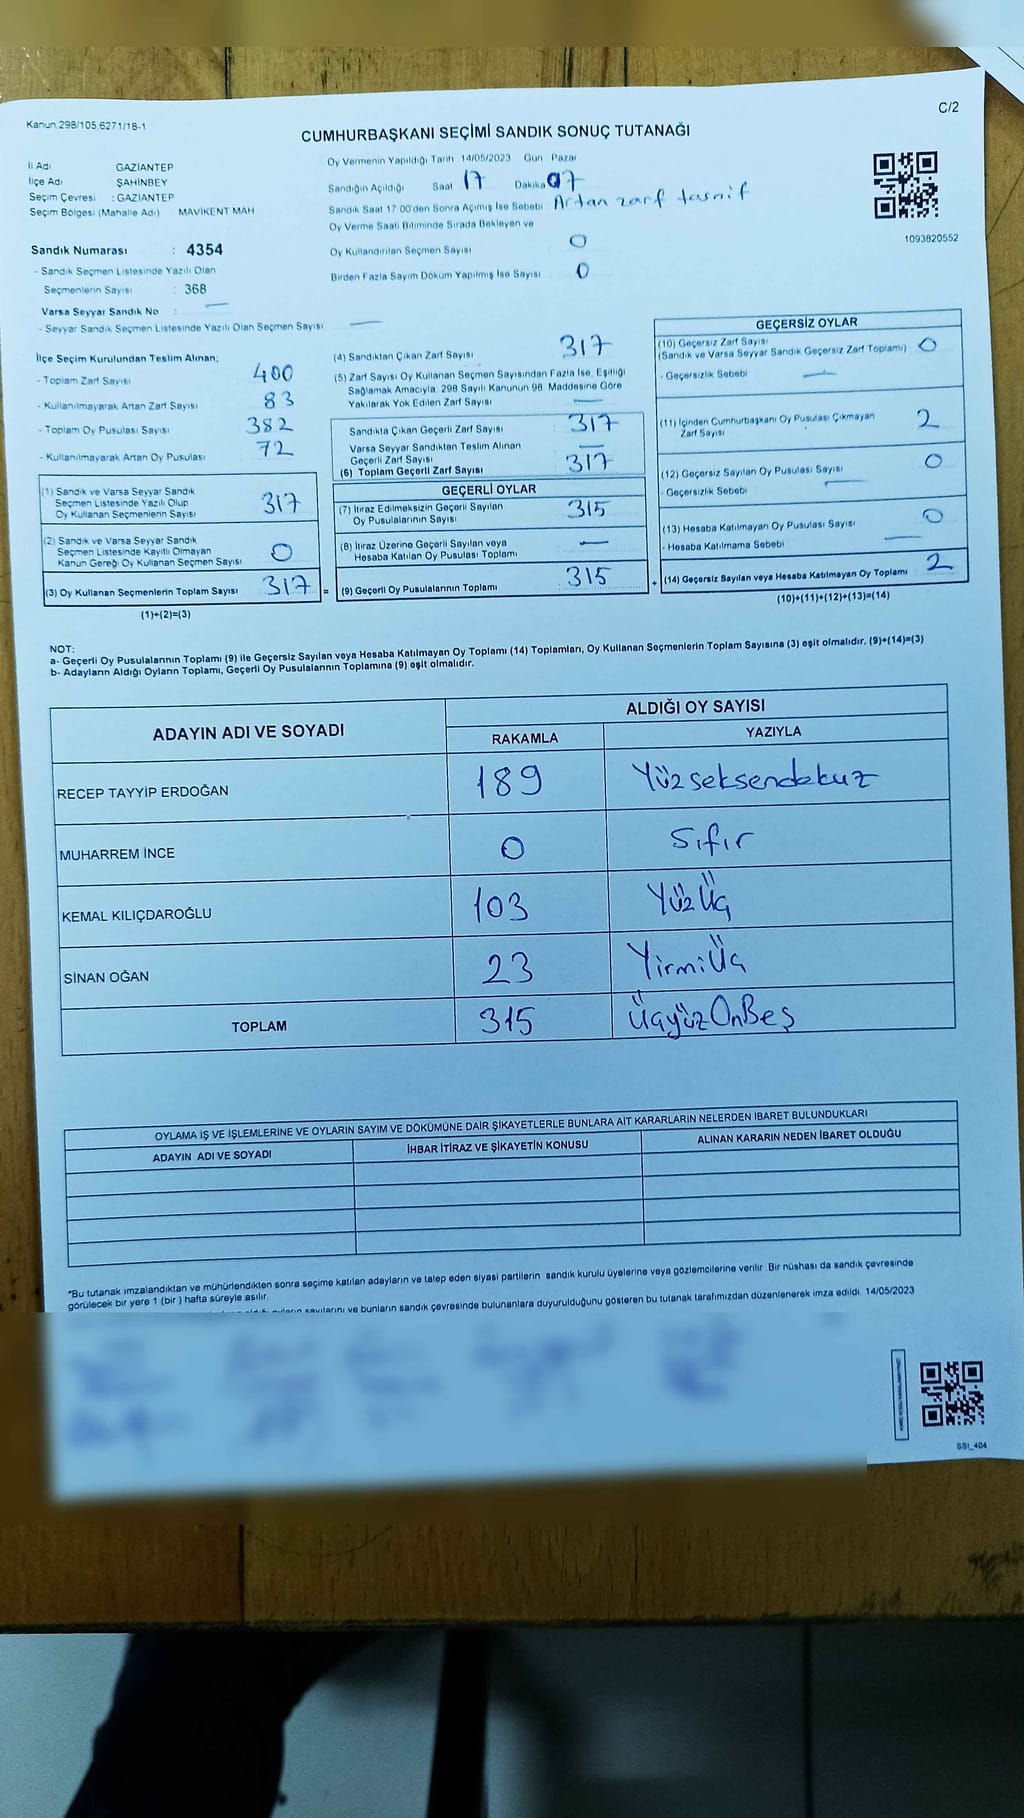 C/2
Kanun.298/105,6271/18-1
CUMHURBAŞKANI SEÇİMİ SANDIK SONUÇ TUTANAĞI
İl Adı GAZİANTEP
İlçe Adı ŞAHİNBEY
Seçim Çevresi : GAZİANTEP
Seçim Bölgesi (Mahalle Adı) MAVİKENT MAH
Sandık Numarası : 4354
- Sandık Seçmen Listesinde Yazılı Olan
Seçmenlerin Sayısı : 368
Varsa Seyyar Sandık No : —
- Seyyar Sandık Seçmen Listesinde Yazılı Olan Seçmen Sayısı —
Oy Vermenin Yapıldığı Tarih 14/05/2023 Gün Pazar
Sandığın Açıldığı Saat 17 Dakika 07
Sandık Saat 17:00'den Sonra Açımış İse Sebebi Artan zarf tasnif
Oy Verme Saati Bitiminde Sırada Bekleyen ve
Oy Kullandırılan Seçmen Sayısı 0
Birden Fazla Sayım Döküm Yapılmış İse Sayısı 0
1093820552
İlçe Seçim Kurulundan Teslim Alınan;
- Toplam Zarf Sayısı 400
- Kullanılmayarak Artan Zarf Sayısı 83
- Toplam Oy Pusulası Sayısı 382
- Kullanılmayarak Artan Oy Pusulası 72
(1) Sandık ve Varsa Seyyar Sandık
Seçmen Listesinde Yazılı Olup
Oy Kullanan Seçmenlerin Sayısı 317
(2) Sandık ve Varsa Seyyar Sandık
Seçmen Listesinde Kayıtlı Olmayan
Kanun Gereği Oy Kullanan Seçmen Sayısı 0
(3) Oy Kullanan Seçmenlerin Toplam Sayısı 317 =
(1)+(2)=(3)
(4) Sandıktan Çıkan Zarf Sayısı 317
(5) Zarf Sayısı Oy Kullanan Seçmen Sayısından Fazla İse, Eşitliği
Sağlamak Amacıyla, 298 Sayılı Kanunun 98. Maddesine Göre
Yakılarak Yok Edilen Zarf Sayısı —
Sandıkta Çıkan Geçerli Zarf Sayısı 317
Varsa Seyyar Sandıktan Teslim Alınan
Geçerli Zarf Sayısı —
(6) Toplam Geçerli Zarf Sayısı 317
GEÇERLİ OYLAR
(7) İtiraz Edilmeksizin Geçerli Sayılan
Oy Pusulalarının Sayısı 315
(8) İtiraz Üzerine Geçerli Sayılan veya
Hesaba Katılan Oy Pusulası Toplamı —
(9) Geçerli Oy Pusulalarının Toplamı 315 +
GEÇERSİZ OYLAR
(10) Geçersiz Zarf Sayısı
(Sandık ve Varsa Seyyar Sandık Geçersiz Zarf Toplamı) 0
- Geçersizlik Sebebi —
(11) İçinden Cumhurbaşkanı Oy Pusulası Çıkmayan
Zarf Sayısı 2
(12) Geçersiz Sayılan Oy Pusulası Sayısı 0
- Geçersizlik Sebebi —
(13) Hesaba Katılmayan Oy Pusulası Sayısı 0
- Hesaba Katılmama Sebebi —
(14) Geçersiz Sayılan veya Hesaba Katılmayan Oy Toplamı 2
(10)+(11)+(12)+(13)=(14)
NOT:
a- Geçerli Oy Pusulalarının Toplamı (9) ile Geçersiz Sayılan veya Hesaba Katılmayan Oy Toplamı (14) Toplamları, Oy Kullanan Seçmenlerin Toplam Sayısına (3) eşit olmalıdır. (9)+(14)=(3)
b- Adayların Aldığı Oyların Toplamı, Geçerli Oy Pusulalarının Toplamına (9) eşit olmalıdır.
ADAYIN ADI VE SOYADI ALDIĞI OY SAYISI
RAKAMLA YAZIYLA
RECEP TAYYİP ERDOĞAN 189 Yüzseksendokuz
MUHARREM İNCE 0 Sıfır
KEMAL KILIÇDAROĞLU 103 YüzÜç
SİNAN OĞAN 23 YirmiÜç
TOPLAM 315 ÜçyüzOnBeş
OYLAMA İŞ VE İŞLEMLERİNE VE OYLARIN SAYIM VE DÖKÜMÜNE DAİR ŞİKAYETLERLE BUNLARA AİT KARARLARIN NELERDEN İBARET BULUNDUKLARI
ADAYIN ADI VE SOYADI İHBAR İTİRAZ VE ŞİKAYETİN KONUSU ALINAN KARARIN NEDEN İBARET OLDUĞU
*Bu tutanak imzalandıktan ve mühürlendikten sonra seçime katılan adayların ve talep eden siyasi partilerin sandık kurulu üyelerine veya gözlemcilerine verilir. Bir nüshası da sandık çevresinde
görülecek bir yere 1 (bir) hafta süreyle asılır.
sayılarını ve bunların sandık çevresinde bulunanlara duyurulduğunu gösteren bu tutanak tarafımızdan düzenlenerek imza edildi. 14/05/2023
SSI_404